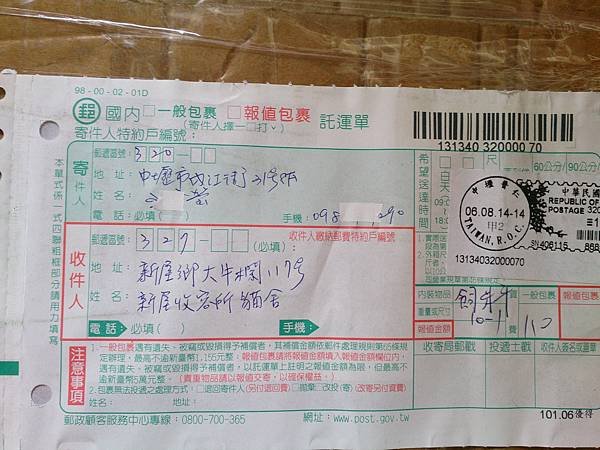 98-00-02-01D
郵 國內 □一般包裹 □報值包裹 託運單
(寄件人擇一□打ˇ)
寄件人特約戶編號：
131340 320000 70
寄件人
郵遞區號：320-□□
地址：中壢市
姓名：
電話：必填( ) 手機：098 290
收件人
收件人繳納郵費特約戶編號
郵遞區號：327-□□(必填)：
地址：新屋鄉大牛欄117号
姓名：新屋收容所貓舍
電話：必填( ) 手機：
希望送達時間
□□尺
白天
60公分/ 90公分/
中壢普仁
06.08.14-14
甲2
TAIWAN, R.O.C.
中華民國
REPUBLIC OF
POSTAGE 320
13134032000070
內裝物品 飼料
重量或尺寸
報值金額
一般包裹
報值包裹
110
收寄局郵戳 投遞士戳 收件人簽名或蓋章
注意事項
1.一般包裹遇有遺失、被竊或毀損得予補償者，其補償金額依郵件處理規則第65條規
定辦理，最高不逾新臺幣1,155元整。報值包裹請將報值金額填入報值金額欄位內，
遇有遺失、被竊或毀損得予補償者，以託運單上註明之報值金額為限，但最高不
逾新臺幣5萬元整。(貴重物品請以報值交寄，以確保權益。)
2.包裹無法投遞之處理方式：□退回寄件人(另付退回費) □拋棄 □改投(寄)(改寄另付資費)
姓名： 地址：
郵政顧客服務中心專線：0800-700-365 網址：www.post.gov.tw
101.06優得
本單式係一式四聯粗框部分請用力填寫